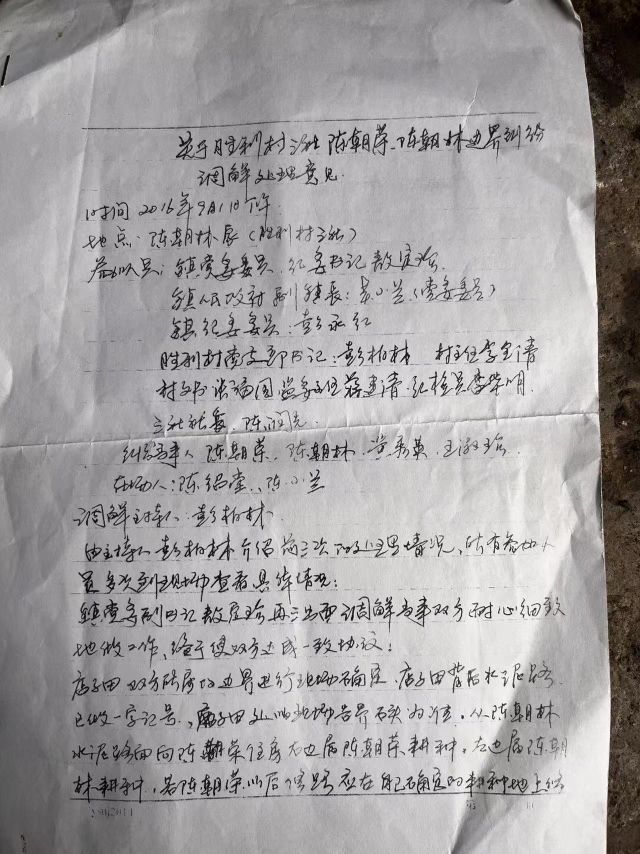 关于胜利村三社陈朝荣、陈朝林边界纠纷
调解处理意见
时间 2016年9月1日下午
地点:陈朝林家(胜利村三社)
参加人员:镇党委委员、纪委书记敖
镇人民政府副镇长:小兰(党委委员)
镇纪委委员:彭永红
胜利村党支部书记:彭柏林 村主任李
村文书 国 监委主任蒋清 纪检员李荣明
三社社长:陈
纠纷当事人 陈朝荣、陈朝林、黄秀英、王
在场人:陈绍堂、陈小兰
调解主持人:彭柏林
由主持人彭柏林介绍前三次的处理情况,所有参加人
员多次到现场查看具体情况:
镇党委副书记敖 再三出面调解当事双方耐心细致
地做工作,终于使双方达成一致协议:
店子田双方所属的边界进行现场确定,店子田背后水泥路
已做一字记号,店子田处以现场各界石头为准,从陈朝林
水泥路面向陈朝荣住房右边属陈朝荣耕种,左边属陈朝
林耕种,若陈朝荣以后修路应在自己确定的耕种地上修